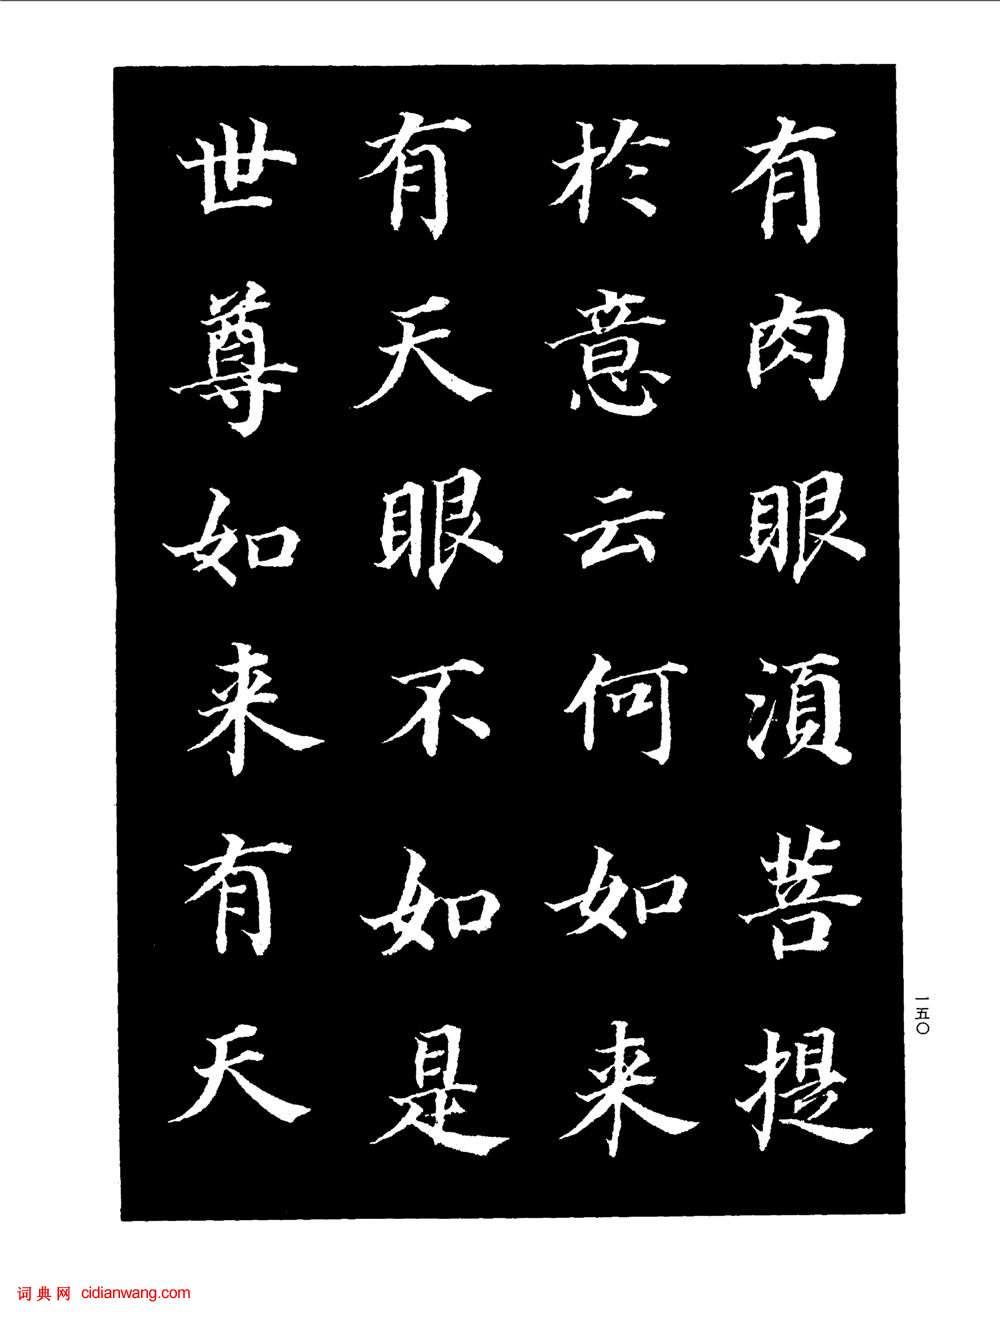 有肉眼湏菩提
於意云何如来
有天眼不如是
世尊如来有天
一五〇
词典网 cidianwang.com